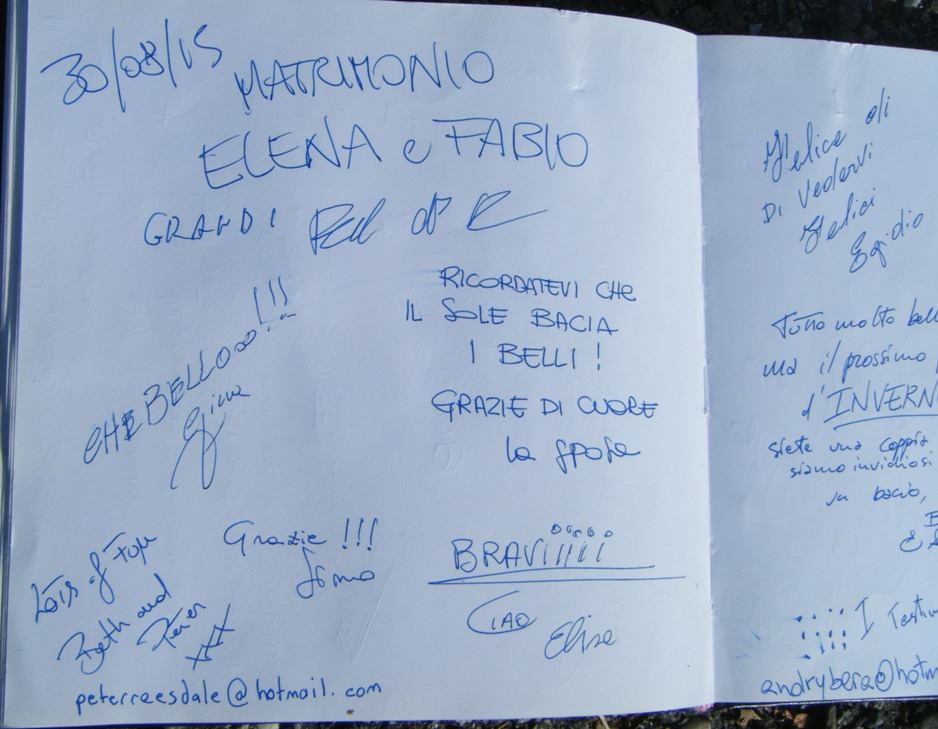 30/08/15
MATRIMONIO
ELENA e FABIO
GRANDI
CHE BELLOooo!!!
RICORDATEVI CHE
IL SOLE BACIA
I BELLI!
GRAZIE DI CUORE
la sposa
Lots of
Beth and
Grazie !!!
BRAViiiii
CIAO
Elisa
peterraesdale@hotmail.com
Felice di
DI Vedervi
Felici
Egidio
Tutto molto bell
ma il prossimo
d'INVERN
siete una coppia
siamo invidiosi
un bacio,
I Testim
andrybera@hotm